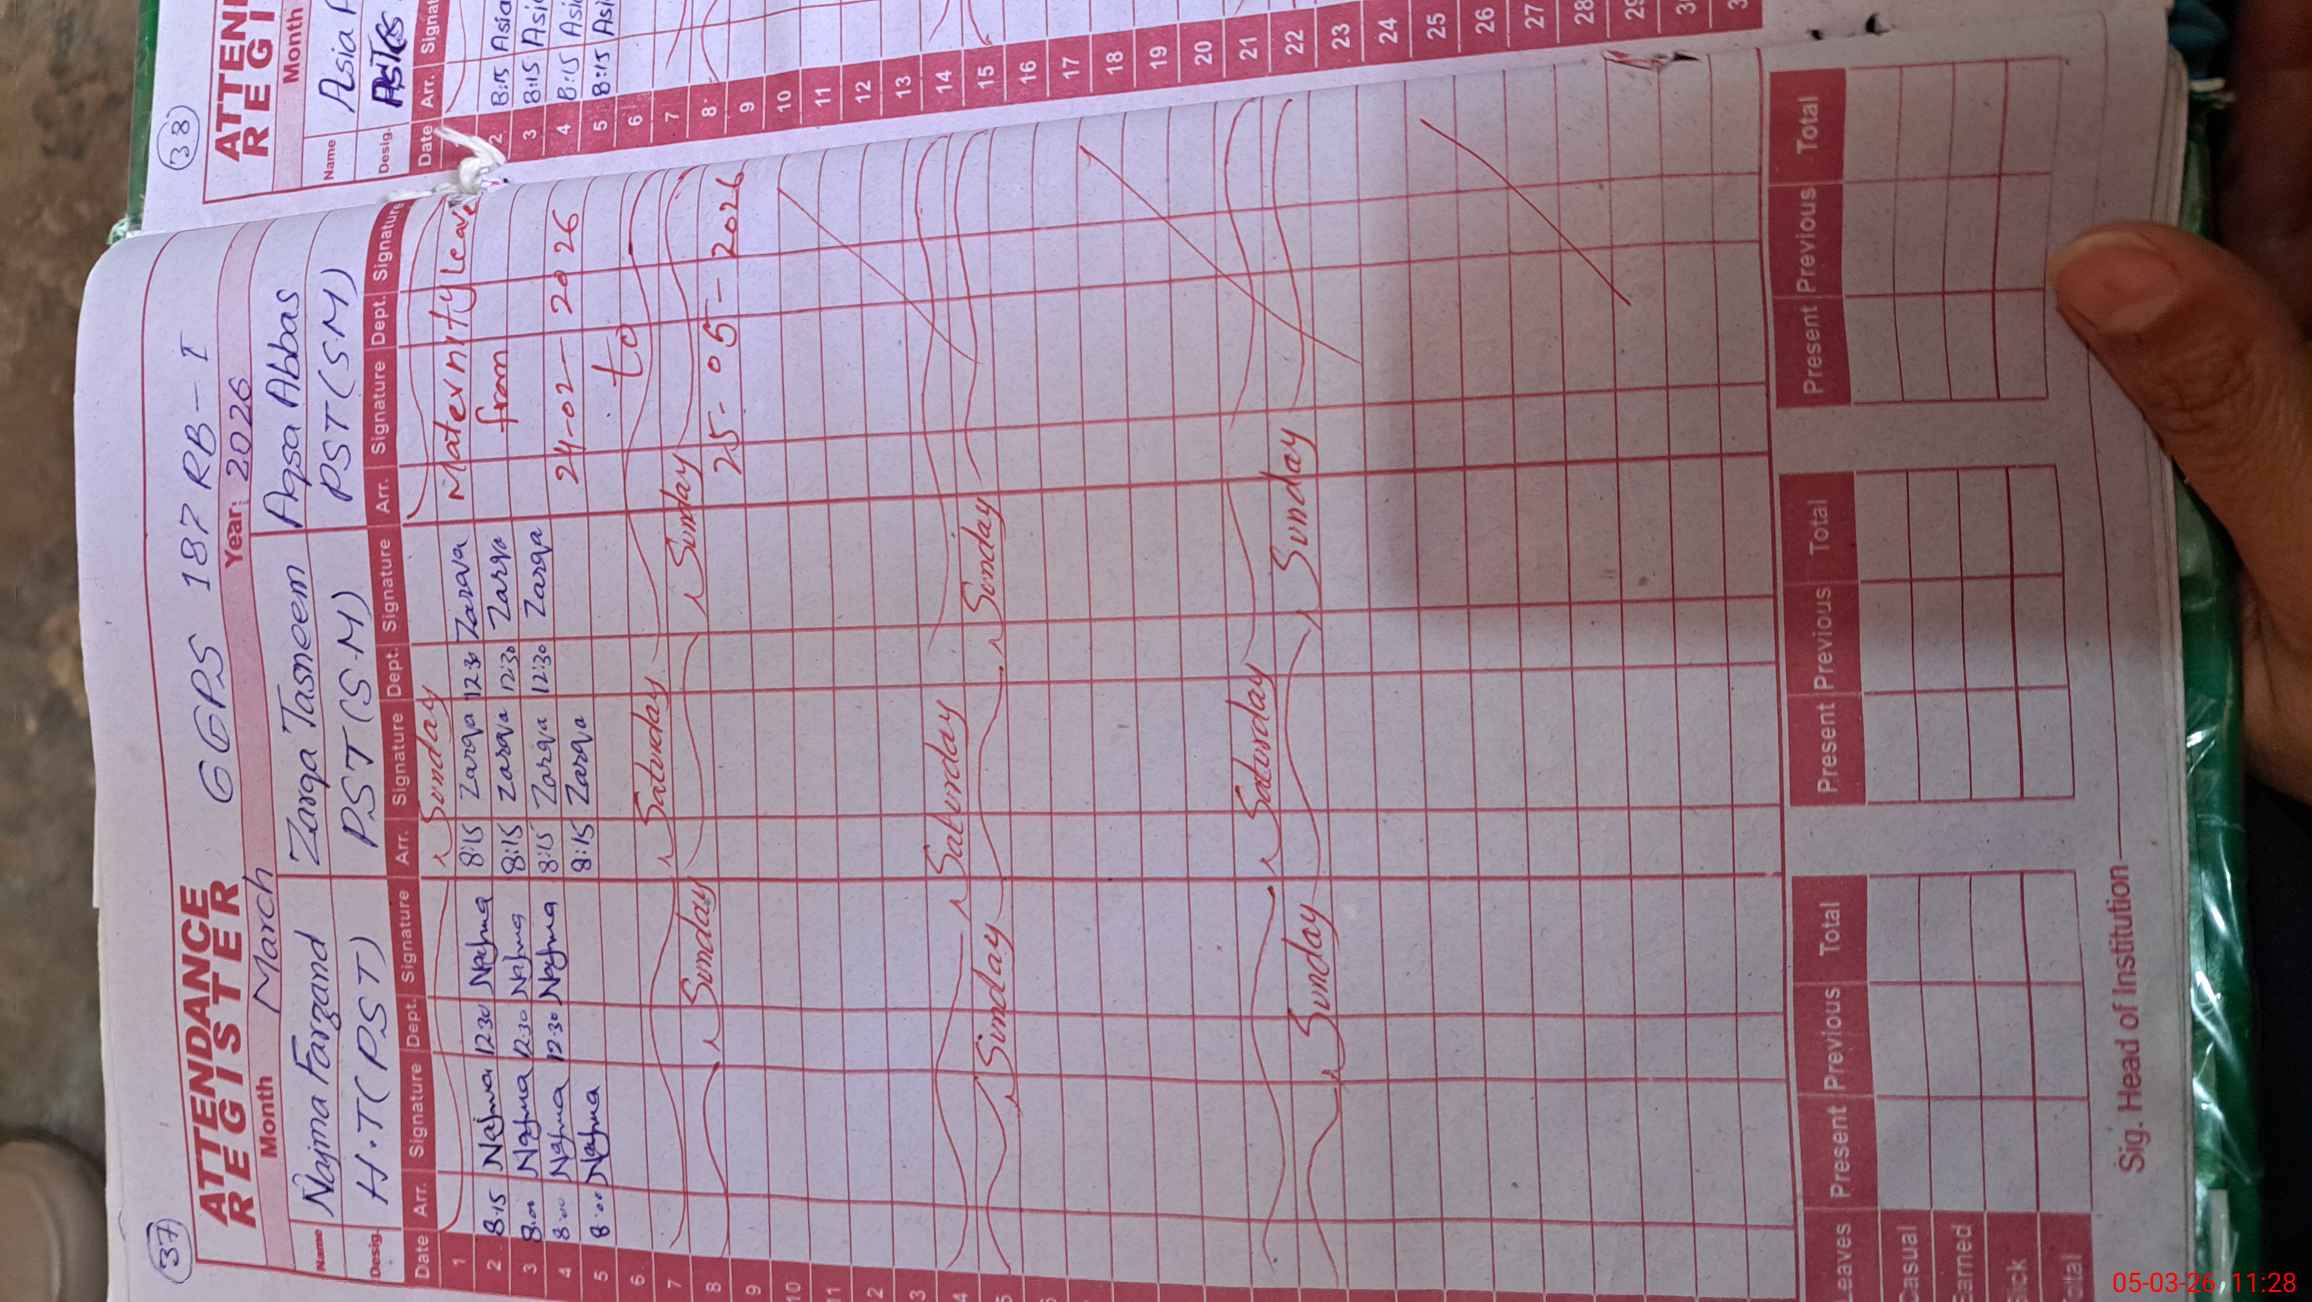 37
ATTENDANCE
REGISTER
GGPS 187 RB-I
Month March Year: 2026
Name Najma Farzand Zarqa Tasneem Aqsa Abbas
Desig. H.T(PST) PST(S.M) PST(SM)
Date Arr. Signature Dept. Signature Arr. Signature Dept. Signature Arr. Signature Dept. Signature
1 Sunday
2 8:15 Najma 12:30 Najma 8:15 Zarqa 12:30 Zarqa
3 8:00 Najma 12:30 Najma 8:15 Zarqa 12:30 Zarqa
4 8:00 Najma 12:30 Najma 8:15 Zarqa 12:30 Zarqa
5 8:00 Najma 8:15 Zarqa
Maternity leave
from
24-02-2026
to
25-05-2026
6
7 Saturday
8 Sunday Sunday
9
10
11
2
3
4 Saturday
5 Sunday Sunday
Saturday
Sunday Sunday
Leaves Present Previous Total Present Previous Total Present Previous Total
Casual
Earned
Sick
Total
Sig. Head of Institution
38
ATTEN
REGI
Month
Name Asia
Desig. PST
Date Arr. Signat
2 8:15 Asia
3 8:15 Asi
4 8:15 Asi
5 8:15 Asi
6
7
8
9
10
11
12
13
14
15
16
17
18
19
20
21
22
23
24
25
26
27
28
29
30
3
05-03-26, 11:28